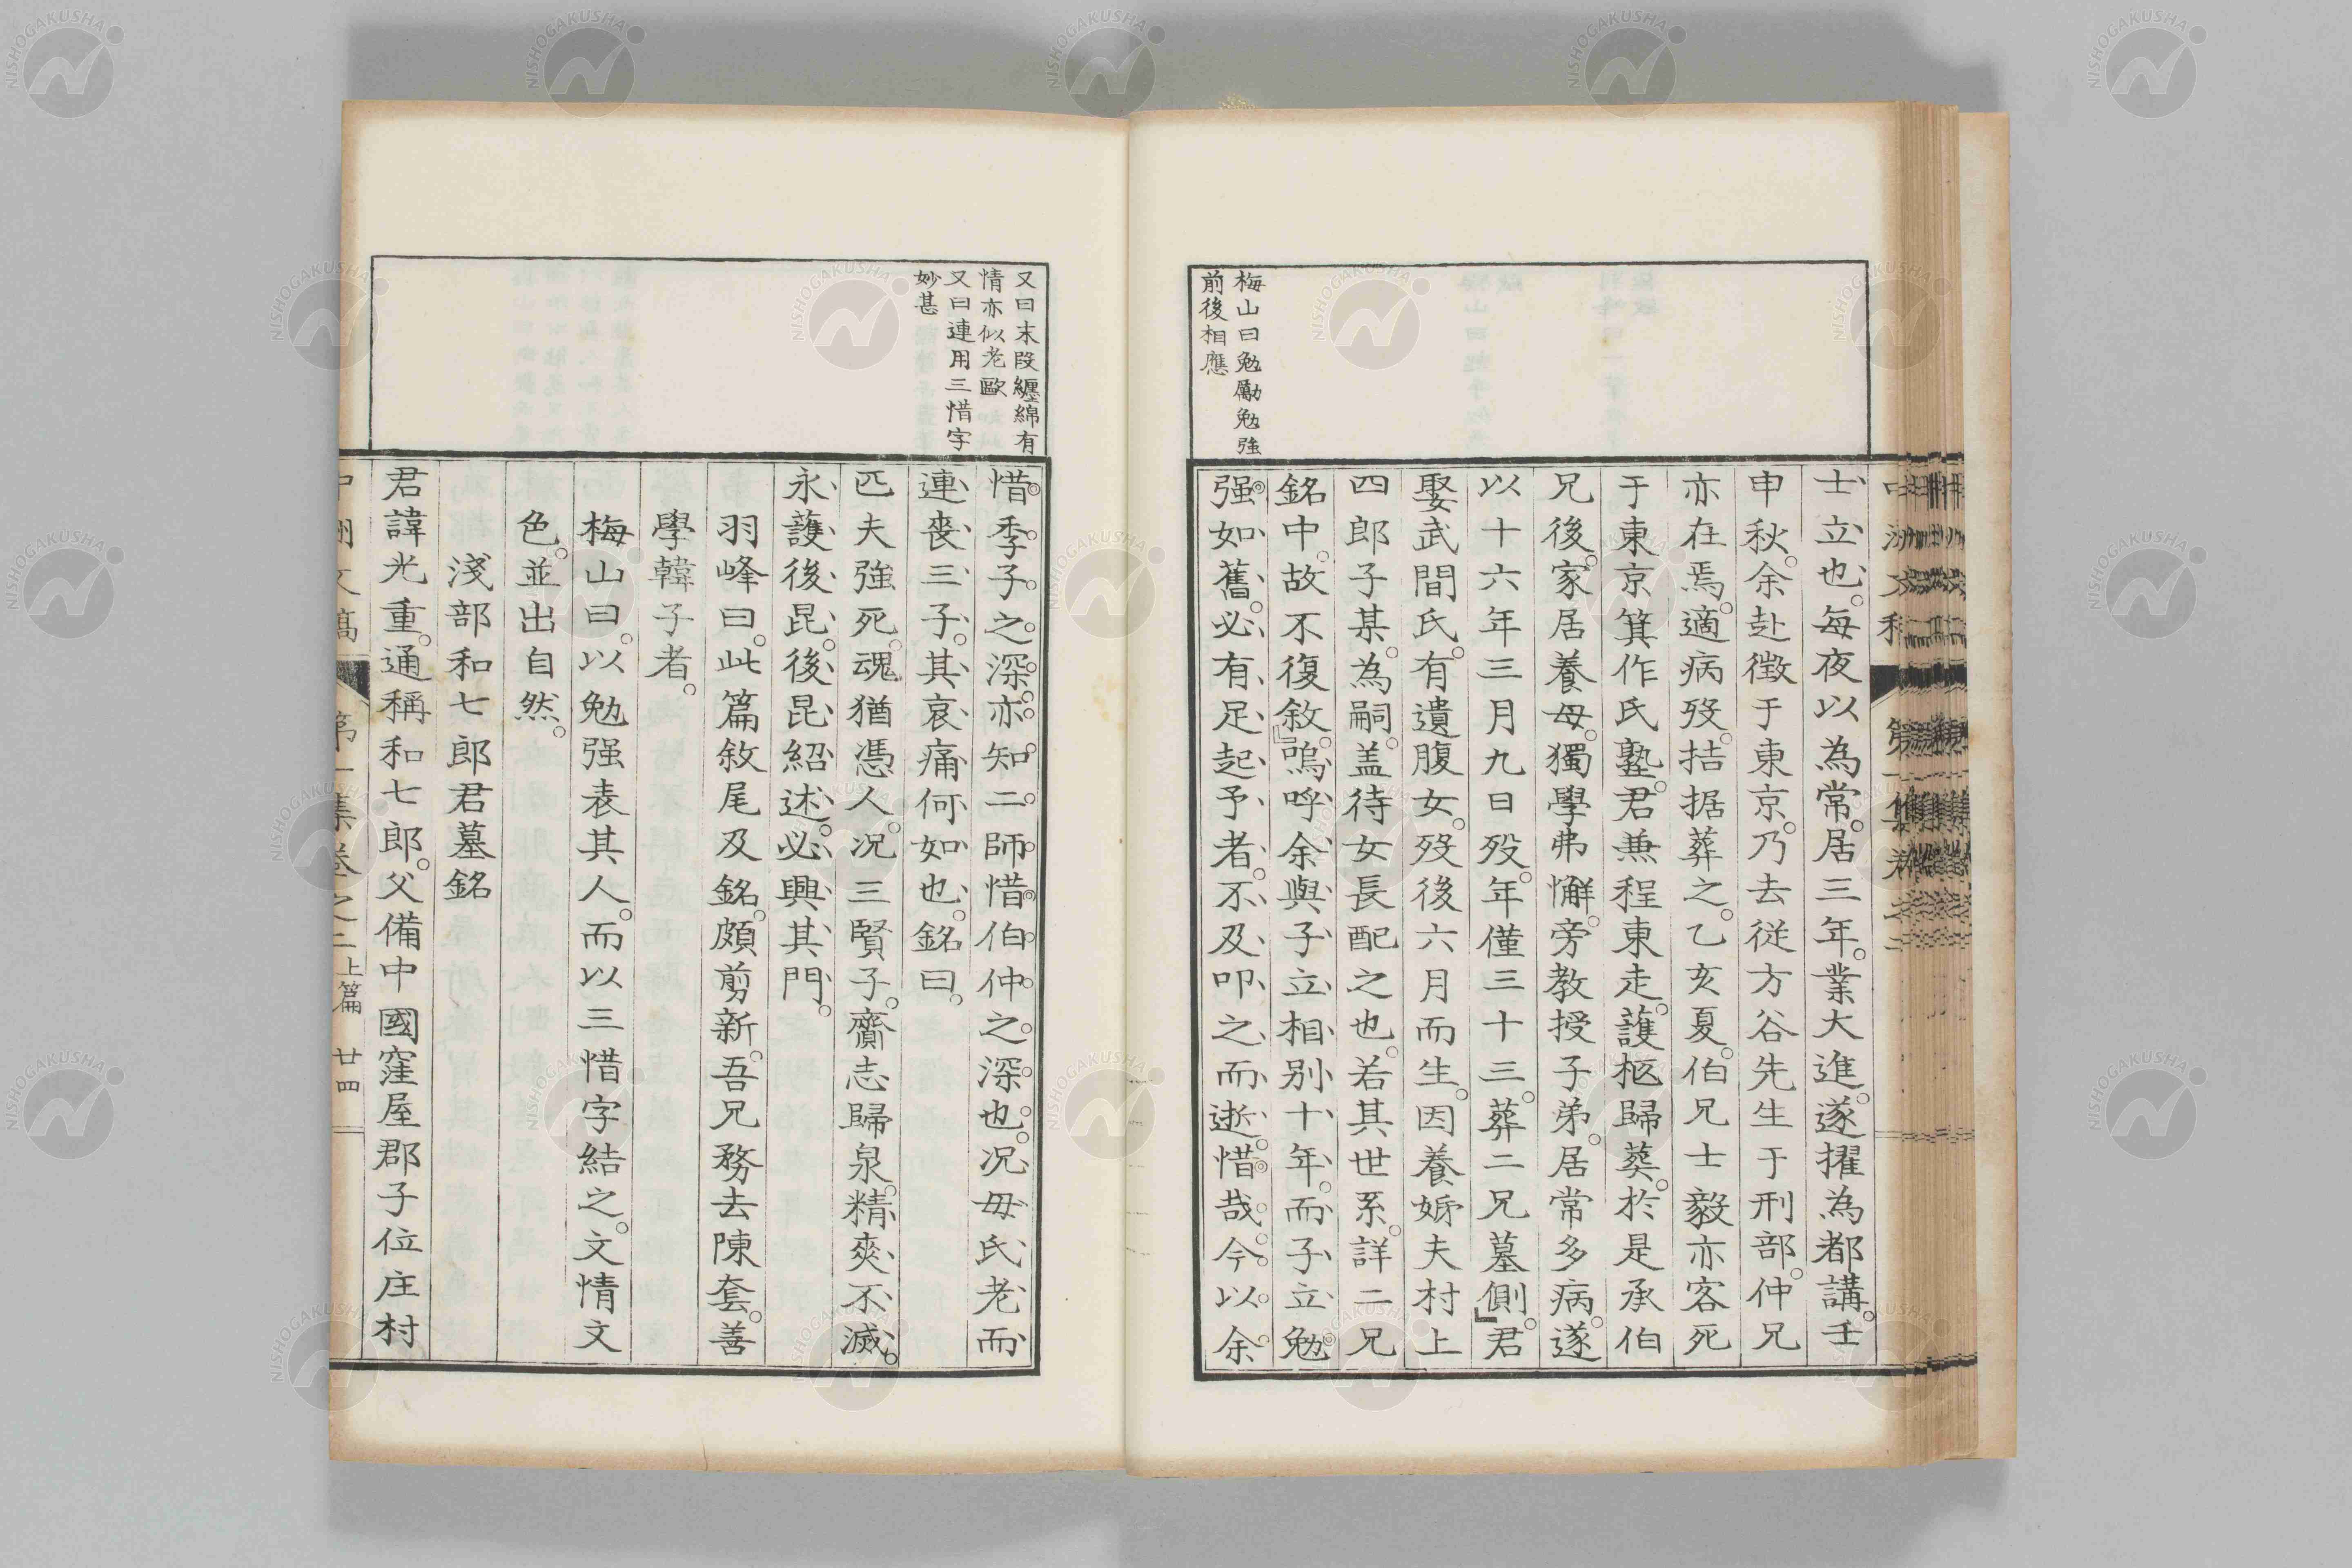 梅山曰勉勵勉強
前後相應
士立也。每夜以為常。居三年。業大進。遂擢為都講。壬
申秋。余赴徵于東京。乃去從方谷先生于刑部。仲兄
亦在焉。適病歿。拮据葬之。乙亥夏。伯兄士毅亦客死
于東京箕作氏塾。君兼程東走。護柩歸葬。於是承伯
兄後。家居養母。獨學弗懈。旁教授子弟。居常多病。遂
以十六年三月九日歿。年僅三十三。葬二兄墓側。』君
娶武間氏。有遺腹女。歿後六月而生。因養姊夫村上
四郎子某。為嗣。盖待女長配之也。若其世系。詳二兄
銘中。故不復敘。』嗚呼余與子立相别十年。而子立勉
强如舊。必有足起予者。不及叩之而逝。惜哉。今以余
又曰末段纏綿有
情亦似老歐
又曰連用三惜字
妙甚
惜季子之深。亦知二師惜伯仲之深也。况母氏老而
連喪三子。其哀痛何如也。銘曰。
匹夫強死。魂猶憑人。况三賢子。齎志歸泉。精爽不滅。
永護後昆。後昆紹述。必興其門。
羽峰曰。此篇敘尾及銘。頗剪新。吾兄務去陳套。善
學韓子者。
梅山曰。以勉强表其人。而以三惜字結之。文情文
色。並出自然。
淺部和七郎君墓銘
君諱光重。通稱和七郎。父備中國窪屋郡子位庄村
第一集卷之二上篇 廿四